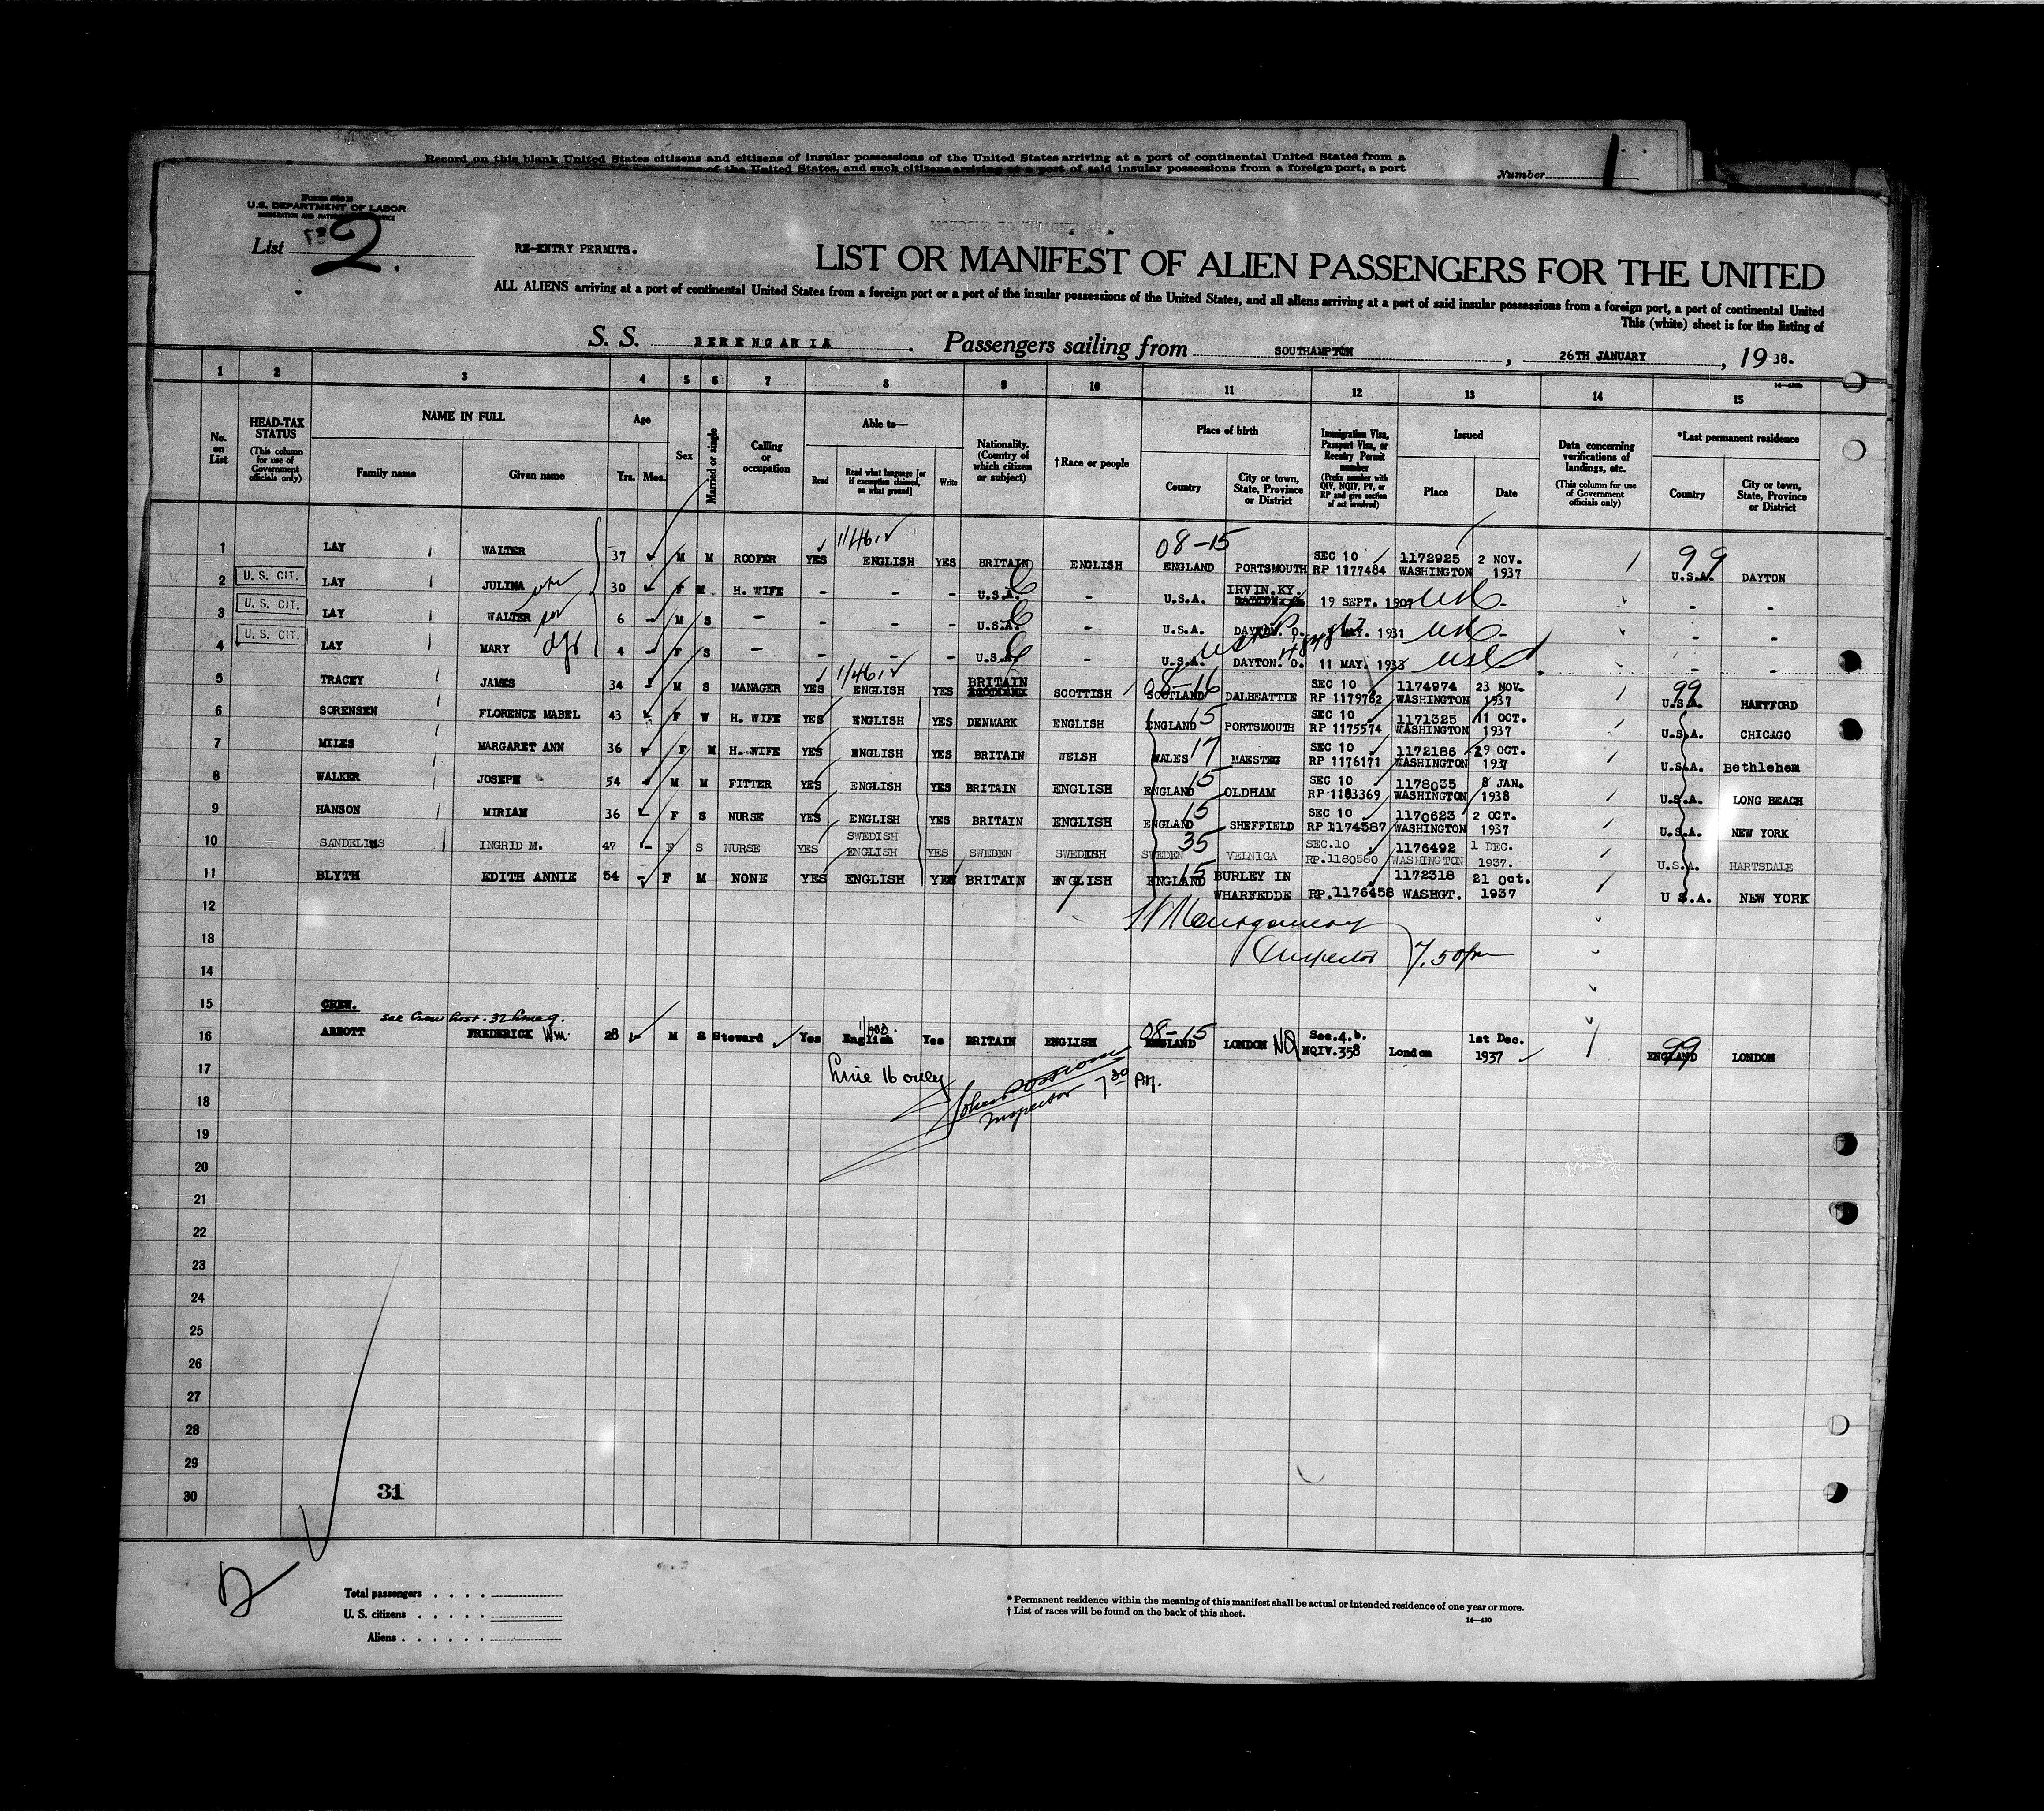 Record on this blank United States citizens and citizens of insular possessions of the United States arriving at a port of continental United States from a
of the United States, and such citizens arriving at a port of said insular possessions from a foreign port, a port
Number 1
U.S. DEPARTMENT OF LABOR
IMMIGRATION AND NATURALIZATION SERVICE
List 2.
RE-ENTRY PERMITS.
LIST OR MANIFEST OF ALIEN PASSENGERS FOR THE UNITED
ALL ALIENS arriving at a port of continental United States from a foreign port or a port of the insular possessions of the United States, and all aliens arriving at a port of said insular possessions from a foreign port, a port of continental United
This (white) sheet is for the listing of
S. S. BERENGARIA. Passengers sailing from SOUTHAMPTON, 26TH JANUARY, 19 38.
1 2 3 4 5 6 7 8 9 10 11 12 13 14 15
No. on List
HEAD-TAX STATUS (This column for use of Government officials only)
NAME IN FULL
Family name
Given name
Age
Yrs. Mos.
Sex
Married or single
Calling or occupation
Able to—
Read
Read what language [or if exemption claimed, on what ground]
Write
Nationality. (Country of which citizen or subject)
†Race or people
Place of birth
Country
City or town, State, Province or District
Immigration Visa, Passport Visa, or Reentry Permit number (Prefix number with QIV, NQIV, PV, or RP and give section of act involved)
Issued
Place
Date
Data concerning verifications of landings, etc. (This column for use of Government officials only)
*Last permanent residence
Country
City or town, State, Province or District
1 LAY WALTER 37 M M ROOFER YES 1/46 ENGLISH YES BRITAIN ENGLISH 08-15 ENGLAND PORTSMOUTH SEC 10 RP 1177484 1172925 WASHINGTON 2 NOV. 1937 99 U.S.A. DAYTON
2 U. S. CIT. LAY JULINA 30 F M H. WIFE - - - U.S.A. - U.S.A. IRVIN.KY. 19 SEPT. 1907 - -
3 U. S. CIT. LAY WALTER son 6 - M S - - - - U.S.A. - U.S.A. DAYTON. O. 1931 - -
4 U. S. CIT. LAY MARY 4 - F S - - - - U.S.A. - U.S.A. DAYTON. O. 11 MAY. 1933 - -
5 TRACEY JAMES 34 - M S MANAGER YES 1/46 ENGLISH YES BRITAIN SCOTTISH 08-16 SCOTLAND DALBEATTIE SEC 10 RP 1179762 1174974 WASHINGTON 23 NOV. 1937 99 U.S.A. HARTFORD
6 SORENSEN FLORENCE MABEL 43 F W H. WIFE YES ENGLISH YES DENMARK ENGLISH ENGLAND 15 PORTSMOUTH SEC 10 RP 1175574 1171325 WASHINGTON 11 OCT. 1937 U.S.A. CHICAGO
7 MILES MARGARET ANN 36 F M H. WIFE YES ENGLISH YES BRITAIN WELSH WALES 17 MAESTEG SEC 10 RP 1176171 1172186 WASHINGTON 29 OCT. 1937 U.S.A. Bethlehem
8 WALKER JOSEPH 54 M M FITTER YES ENGLISH YES BRITAIN ENGLISH ENGLAND 15 OLDHAM SEC 10 RP 1183369 1178035 WASHINGTON 8 JAN. 1938 U.S.A. LONG BEACH
9 HANSON MIRIAM 36 F S NURSE YES ENGLISH YES BRITAIN ENGLISH ENGLAND 15 SHEFFIELD SEC 10 RP 1174587 1170623 WASHINGTON 2 OCT. 1937 U.S.A. NEW YORK
10 SANDELIUS INGRID M. 47 - F S NURSE YES SWEDISH ENGLISH YES SWEDEN SWEDISH SWEDEN 35 VELNIGA SEC.10 RP.1180580 1176492 WASHINGTON 1 DEC. 1937. U.S.A. HARTSDALE
11 BLYTH EDITH ANNIE 54 - F M NONE YES ENGLISH YES BRITAIN ENGLISH ENGLAND 15 BURLEY IN WHARFEDDE RP.1176458 1172318 WASHGT. 21 Oct. 1937 U S.A. NEW YORK
12
Montgomery
13
Inspector 7.50pm
14
15 CREW.
see Crew List. 32 line 9.
16 ABBOTT FREDERICK Wm. 28 M S Steward Yes English Yes BRITAIN ENGLISH 08-15 ENGLAND LONDON NQ Sec.4.b. NQIV.358 London 1st Dec. 1937 99 ENGLAND LONDON
17
Line 16 only
Inspector 7 30 P.M.
18
19
20
21
22
23
24
25
26
27
28
29
30
31
Total passengers
U. S. citizens
Aliens
* Permanent residence within the meaning of this manifest shall be actual or intended residence of one year or more.
† List of races will be found on the back of this sheet.
14—430